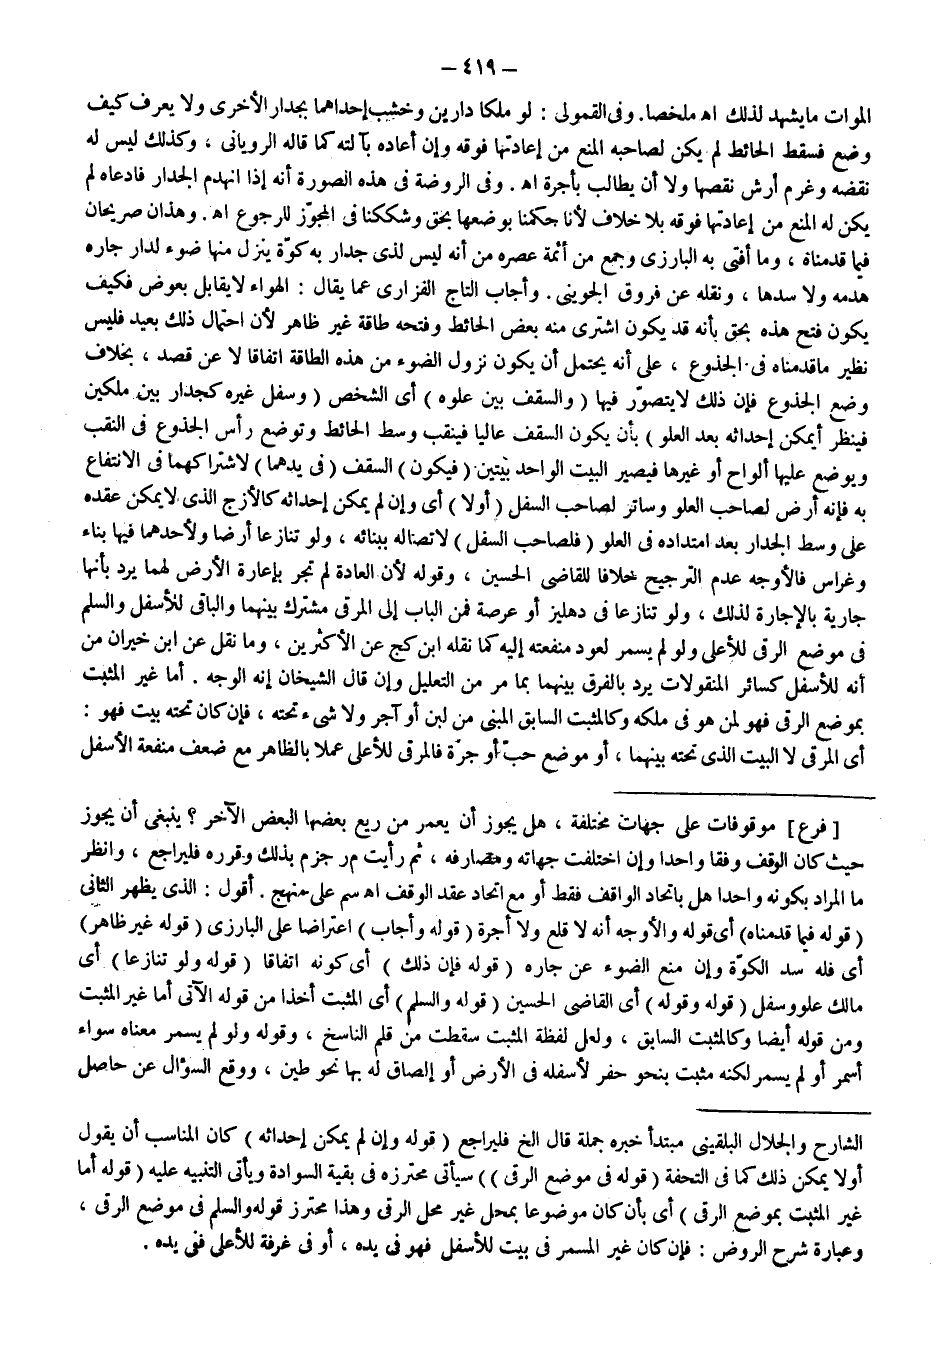 – ٤١٩ –
الموات مايشهد لذلك اه ملخصا. وفى القمولى : لو ملكا دارين وخشب إحداهما بجدار الأخرى ولا يعرف كيف
وضع فسقط الحائط لم يكن لصاحبه المنع من إعادتها فوقه وإن أعاده بآلته كما قاله الرويانى ، وكذلك ليس له
نقضه وغرم أرش نقصها ولا أن يطالب بأجرة اه . وفى الروضة فى هذه الصورة أنه إذا انهدم الجدار فادعاه لم
يكن له المنع من إعادتها فوقه بلا خلاف لأنا حكمنا بوضعها بحق وشككنا فى المجوّز للرجوع اه . وهذان صريحان
فيما قدمناه ، وما أفتى به البارزى وجمع من أئمة عصره من أنه ليس لذى جدار به كوّة ينزل منها ضوء لدار جاره
هدمه ولا سدها ، ونقله عن فروق الجوينى . وأجاب التاج الفزارى عما يقال : الهواء لايقابل بعوض فكيف
يكون فتح هذه بحق بأنه قد يكون اشترى منه بعض الحائط وفتحه طاقة غير ظاهر لأن احتمال ذلك بعيد فليس
نظير ماقدمناه فى الجذوع ، على أنه يحتمل أن يكون نزول الضوء من هذه الطاقة اتفاقا لا عن قصد ، بخلاف
وضع الجذوع فإن ذلك لايتصوّر فيها ( والسقف بين علوه ) أى الشخص ( وسفل غيره كجدار بين ملكين
فينظر أيمكن إحداثه بعد العلو ) بأن يكون السقف عاليا فينقب وسط الحائط وتوضع رأس الجذوع فى النقب
ويوضع عليها ألواح أو غيرها فيصير البيت الواحد بيتين (فيكون) السقف (فى يدهما) لاشتراكهما فى الانتفاع
به فإنه أرض لصاحب العلو وساتر لصاحب السفل ( أولا ) أى وإن لم يمكن إحداثه كالأزج الذى لايمكن عقده
على وسط الجدار بعد امتداده فى العلو ( فلصاحب السفل ) لاتصاله ببنائه ، ولو تنازعا أرضا ولأحدهما فيها بناء
وغراس فالأوجه عدم الترجيح خلافا للقاضى الحسين ، وقوله لأن العادة لم تجر بإعارة الأرض لهما يرد بأنها
جارية بالإجارة لذلك ، ولو تنازعا فى دهليز أو عرصة فمن الباب إلى المرقى مشترك بينهما والباقى للأسفل والسلم
فى موضع الرقى للأعلى ولو لم يسمر لعود منفعته إليه كما نقله ابن كج عن الأكثرين ، وما نقل عن ابن خيران من
أنه للأسفل كسائر المنقولات يرد بالفرق بينهما بما مر من التعليل وإن قال الشيخان إنه الوجه . أما غير المثبت
بموضع الرقى فهو لمن هو فى ملكه وكالمثبت السابق المبنى من لبن أو آجر ولا شىء تحته ، فإن كان تحته بيت فهو :
أى المرقى لا البيت الذى تحته بينهما ، أو موضع حبّ أو جرّة فالمرقى للأعلى عملا بالظاهر مع ضعف منفعة الأسفل
[ فرع ] موقوفات على جهات مختلفة ، هل يجوز أن يعمر من ريع بعضها البعض الآخر ؟ ينبغى أن يجوز
حيث كان الوقف وقفا واحدا وإن اختلفت جهاته ومصارفه ، ثم رأيت مر جزم بذلك وقرره فليراجع ، وانظر
ما المراد بكونه واحدا هل باتحاد الواقف فقط أو مع اتحاد عقد الوقف اه سم على منهج . أقول : الذى يظهر الثانى
( قوله فيما قدمناه) أى قوله والأوجه أنه لا قلع ولا أجرة ( قوله وأجاب ) اعتراضا على البارزى ( قوله غير ظاهر)
أى فله سد الكوّة وإن منع الضوء عن جاره ( قوله فإن ذلك ) أى كونه اتفاقا ( قوله ولو تنازعا ) أى
مالك علو وسفل ( قوله وقوله ) أى القاضى الحسين ( قوله والسلم ) أى المثبت أخذا من قوله الآتى أما غير المثبت
ومن قوله أيضا وكالمثبت السابق ، ولعل لفظة المثبت سقطت من قلم الناسخ ، وقوله ولو لم يسمر معناه سواء
أسمر أو لم يسمر لكنه مثبت بنحو حفر لأسفله فى الأرض أو إلصاق له بها نحو طين ، ووقع السؤال عن حاصل
الشارح والجلال البلقينى مبتدأ خبره جملة قال الخ فليراجع ( قوله وإن لم يمكن إحداثه ) كان المناسب أن يقول
أولا يمكن ذلك كما فى التحفة ( قوله فى موضع الرقى )) سيأتى محترزه فى بقية السوادة ويأتى التنبيه عليه ( قوله أما
غير المثبت بموضع الرقى ) أى بأن كان موضوعا بمحل غير محل الرقى وهذا محترز قوله والسلم فى موضع الرقى ،
وعبارة شرح الروض : فإن كان غير المسمر فى بيت للأسفل فهو فى يده ، أو فى غرفة للأعلى ففى يده .